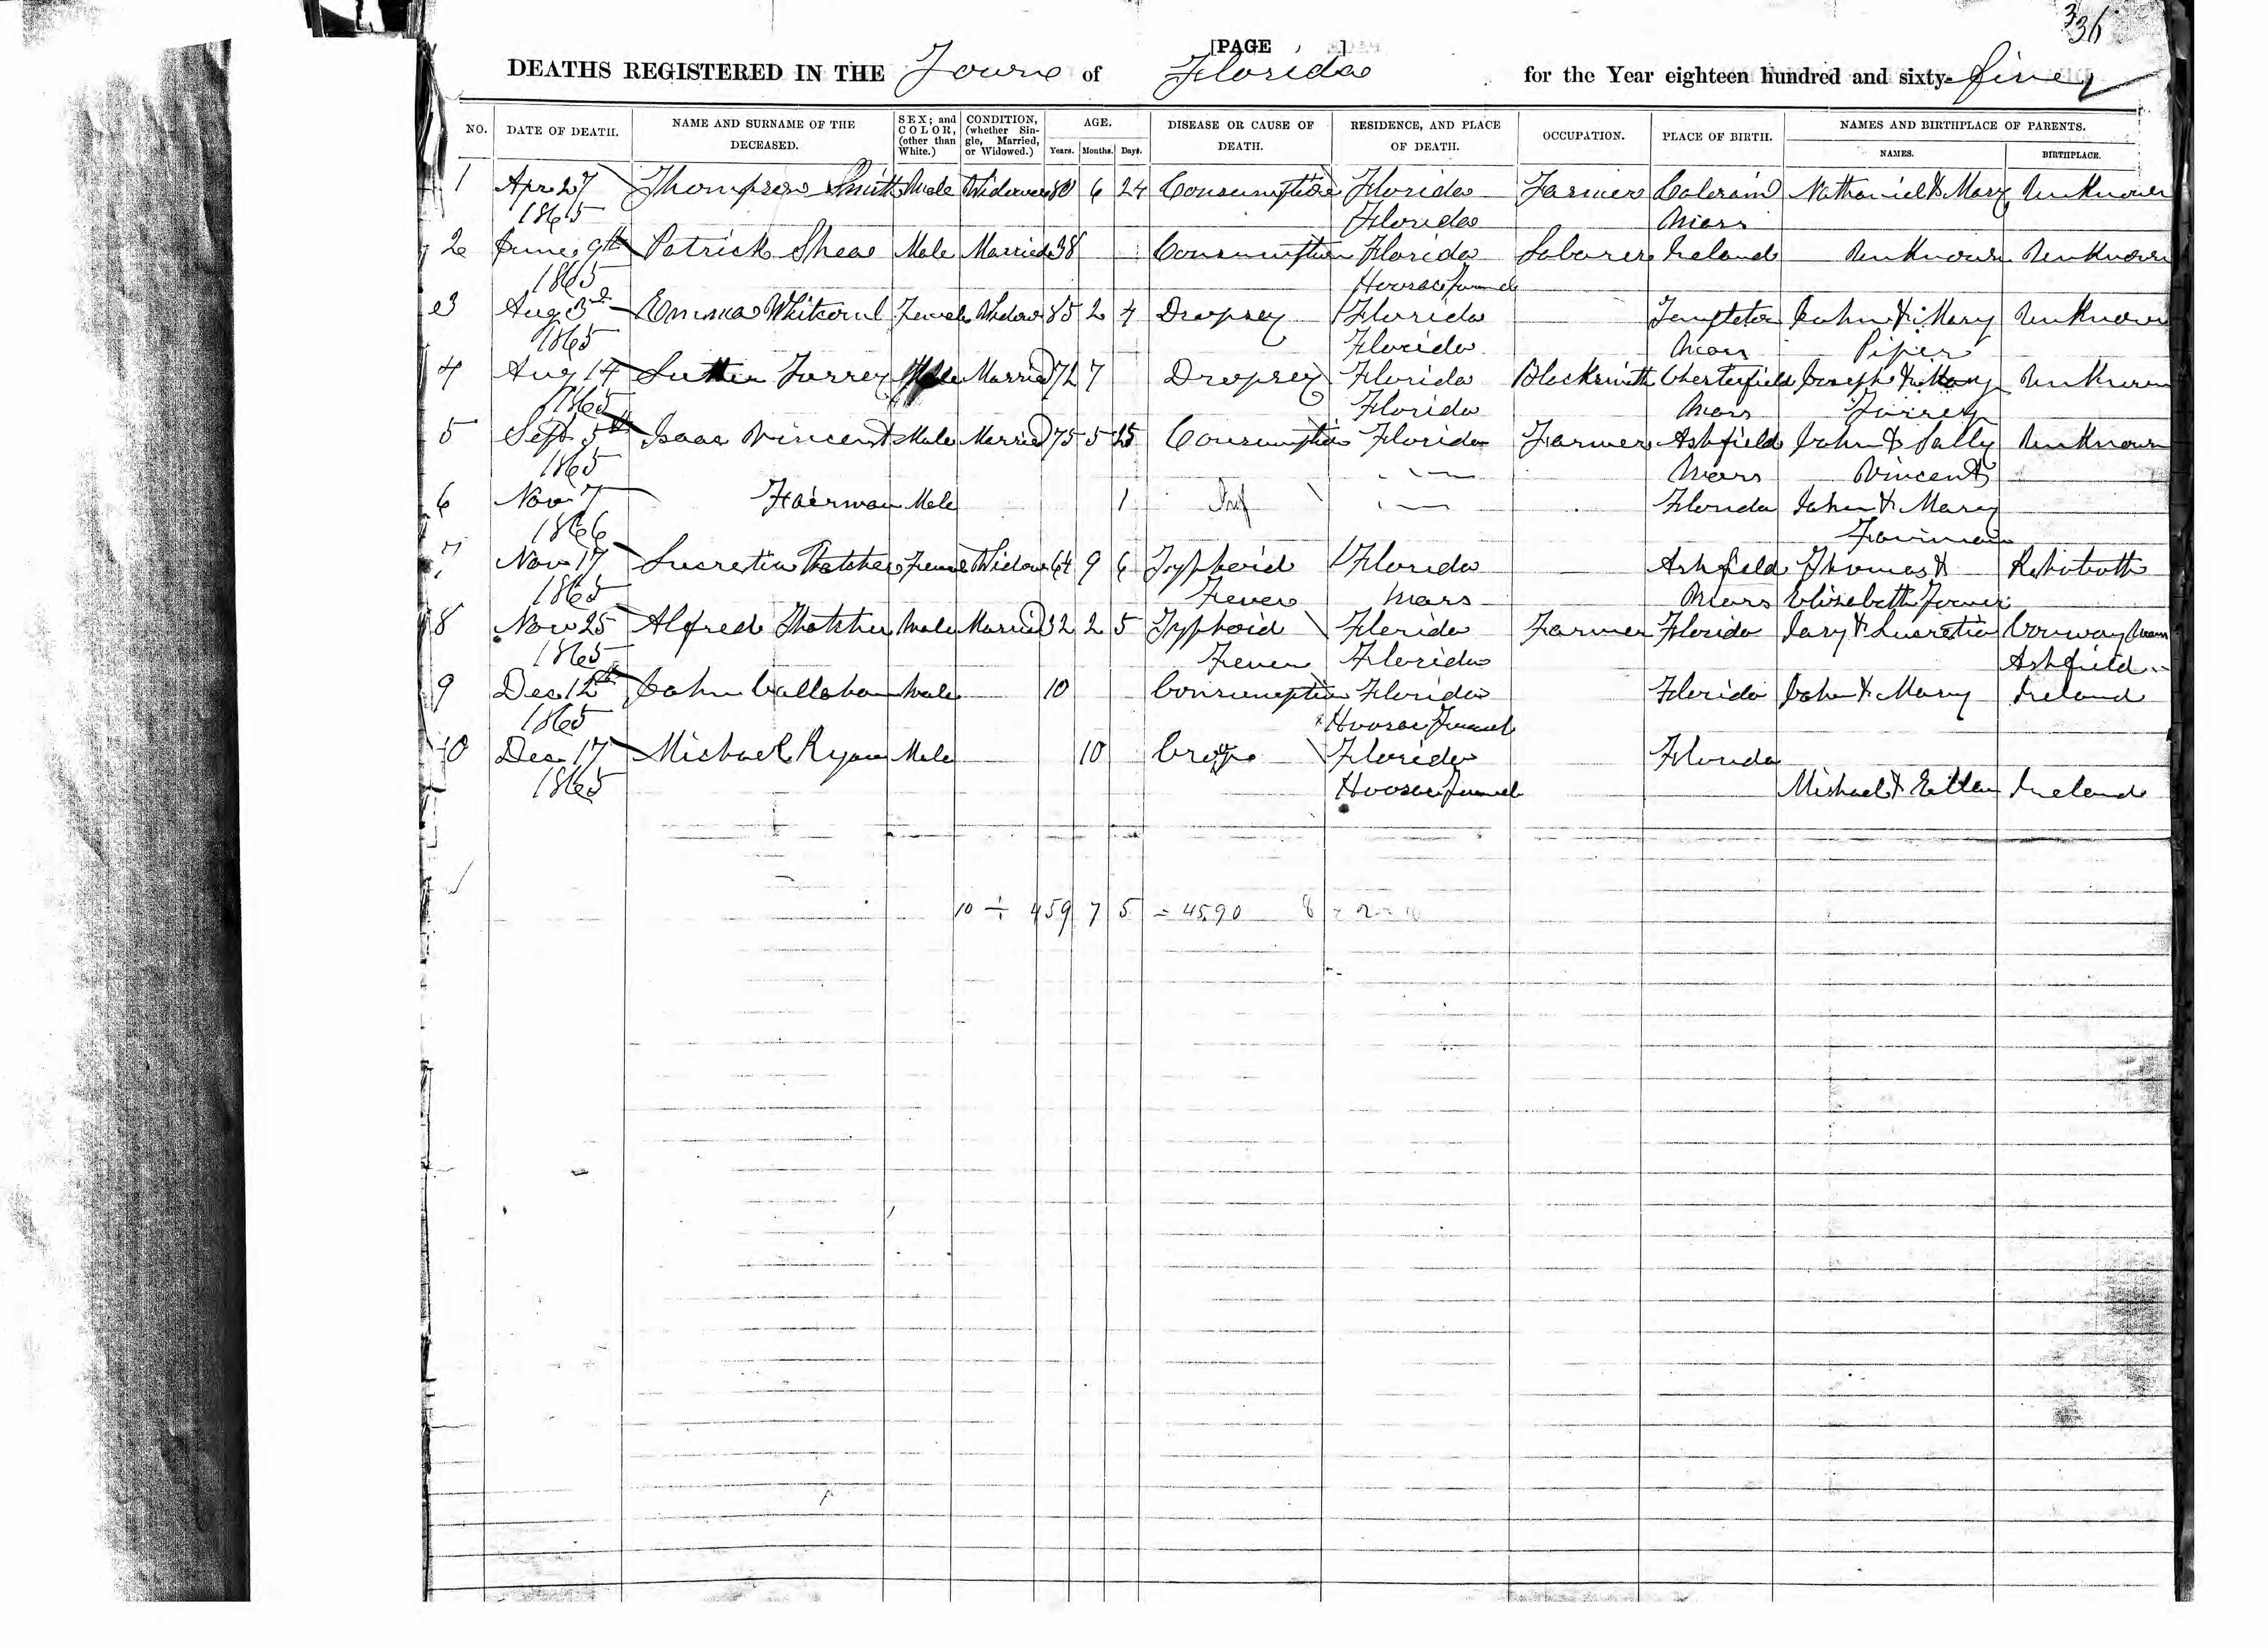 336
[PAGE ]
DEATHS REGISTERED IN THE Town of Florida for the Year eighteen hundred and sixty-five
NO. DATE OF DEATH. NAME AND SURNAME OF THE DECEASED. SEX; and COLOR, (other than White.) CONDITION, (whether Single, Married, or Widowed.) AGE. Years. Months. Days. DISEASE OR CAUSE OF DEATH. RESIDENCE, AND PLACE OF DEATH. OCCUPATION. PLACE OF BIRTH. NAMES AND BIRTHPLACE OF PARENTS. NAMES. BIRTHPLACE.
1 Apr 27 Thompson Smith Male Widower 80 6 24 Consumption Florida Farmer Colerain Nathaniel & Mary Unknown
1865 Florida Mass
2 June 9th Patrick Shea Male Married 38 Consumption Florida Laborer Ireland Unknown Unknown
1865 Hoosac Tunnel
3 Aug 3d Emma Whitcomb Female Widow 85 2 4 Dropsey Florida Templeton John & Mary Unknown
1865 Florida Mass Piper
4 Aug 14 Luther Torrey Male Married 72 7 Dropsey Florida Blacksmith Chesterfield Joseph & Mary Unknown
1865 Florida Mass Torrey
5 Sept 5th Isaac Vincent Male Married 75 5 25 Consumption Florida Farmer Ashfield John & Sally Unknown
1865 Mass Vincent
6 Nov 7 Fairman Male 1 Inf Florida John & Mary
1866 Fairman
7 Nov 17 Lucretia Thatcher Female Widow 64 9 6 Typhoid Florida Ashfield Thomas & Rehoboth
1865 Fever Mass Mass Elizabeth
8 Nov 25 Alfred Thatcher Male Married 32 2 5 Typhoid Florida Farmer Florida & Lucretia Conway Mass
1865 Fever Florida Ashfield
9 Dec 12th John Callahan Male 10 Consumption Florida Florida John & Mary Ireland
1865 Hoosac Tunnel
10 Dec 17 Michael Ryan Male 10 Croup Florida Florida
1865 Hoosac Tunnel Michael & Ellen Ireland
10 ÷ 459 7 5 = 45.90 8